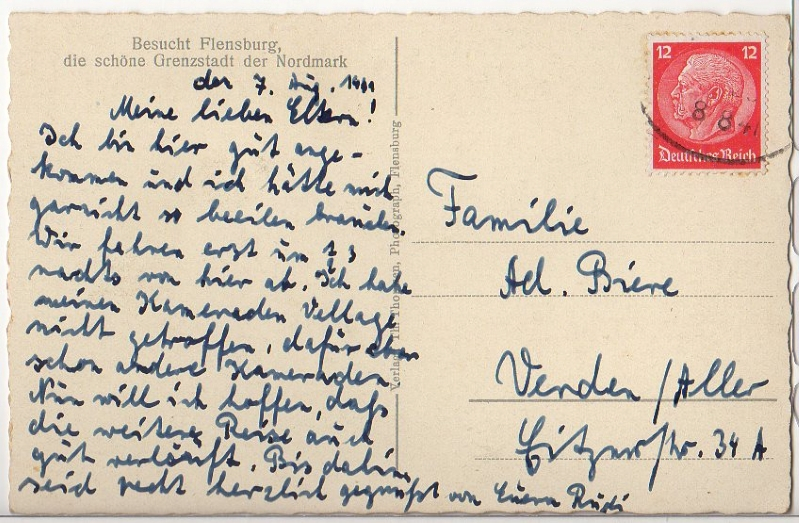 Besucht Flensburg,
die schöne Grenzstadt der Nordmark
den 7. Aug. 1941
Meine lieben Eltern!
Ich bin hier gut ange-
kommen und ich hätte mich
garnicht so beeilen brauchen.
Wir fahren erst um 23
nachts von hier ab. Ich habe
meinen Kameraden
nicht getroffen, dafür aber
schon andere Kameraden.
Nun will ich hoffen, daß
die weitere Reise auch
gut verläuft. Bis dahin
seid recht herzlich gegrüßt von Euern Rudi
Verlag Th. Thomsen, Photograph, Flensburg
12 12
Deutsches Reich
8 8 41
Familie
Ad. Biere
Verden/Aller
34 A